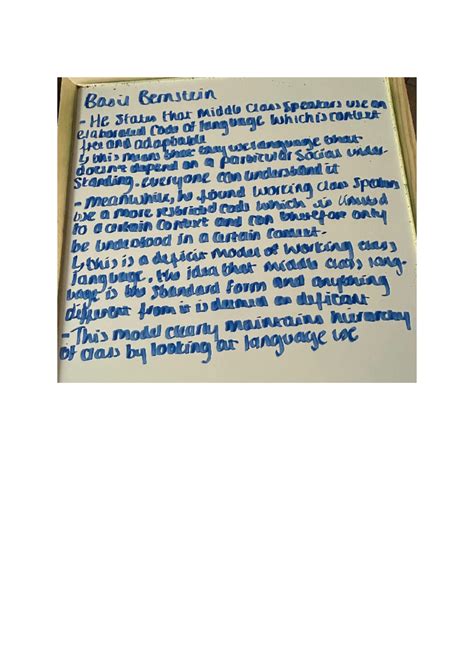 Basil Bernstein
- He states that middle class speakers use an
elaborated code of language which is context
free and adaptable
↳ this means that they use language that
doesn't depend on a particular social under-
standing. everyone can understand it
- Meanwhile, he found working class speakers
use a more restricted code which is linked
to a certain context and can therefore only
be understood in a certain context.
↳ this is a deficit model of working class
language. the idea that middle class lang-
uage is the standard form and anything
different from it is deemed as deficant
- This model clearly maintains hierarchy
of class by looking at language use